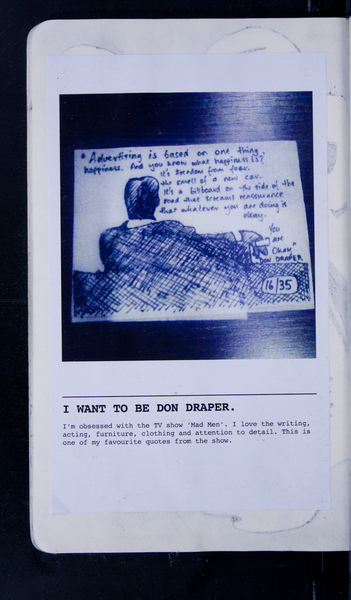 "Advertising is based on one thing,
happiness. And you know what happiness is?
It's freedom from fear.
the smell of a new car.
It's a billboard on the side of the
road that screams reassurance
that whatever you are doing is
okay.
You
are
Okay"
DON DRAPER
16/35
I WANT TO BE DON DRAPER.
I'm obsessed with the TV show 'Mad Men'. I love the writing,
acting, furniture, clothing and attention to detail. This is
one of my favourite quotes from the show.